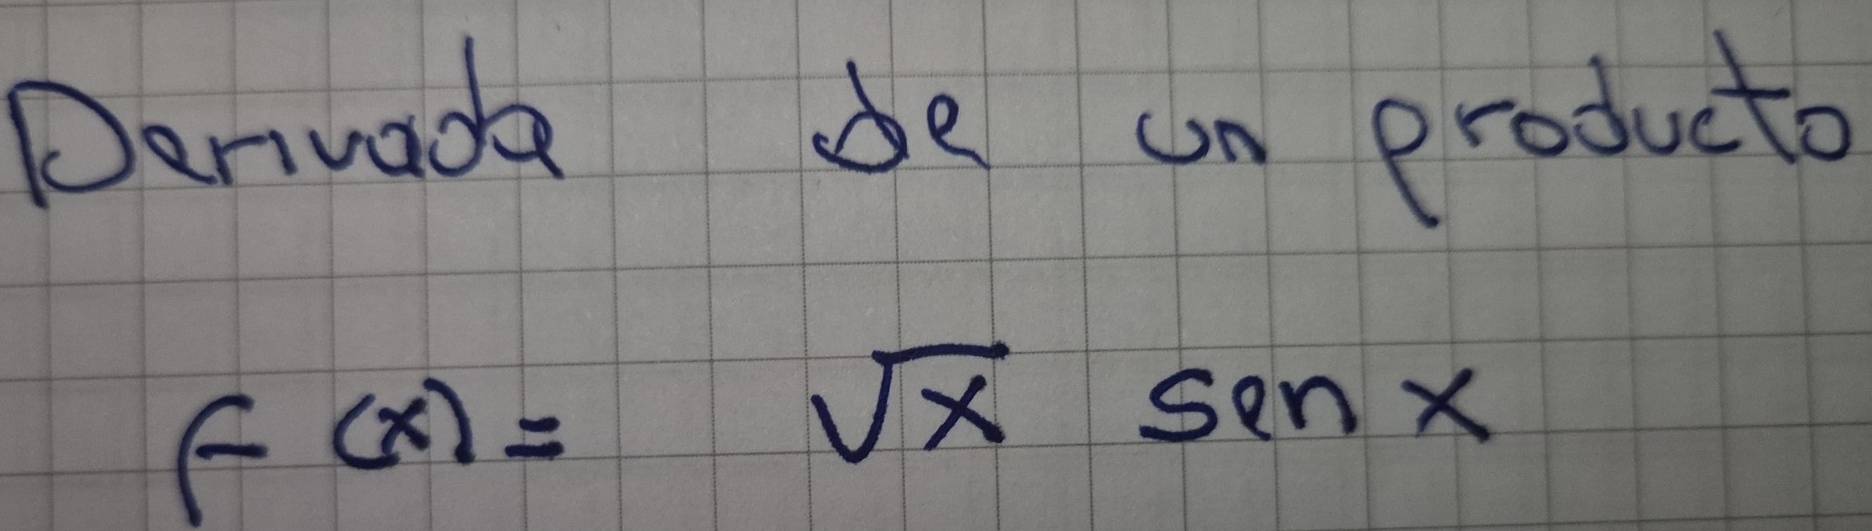 Derivada de un producto
f(x) = √x sen x